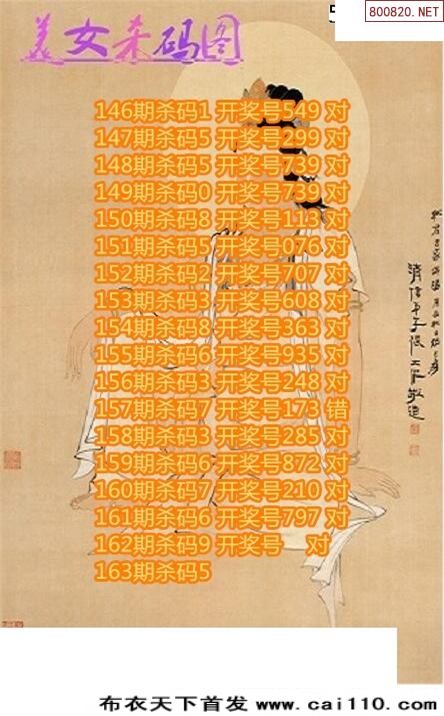 800820.NET
美女杀码图
146期杀码1 开奖号549 对
147期杀码5 开奖号299 对
148期杀码5 开奖号739 对
149期杀码0 开奖号739 对
150期杀码8 开奖号113 对
151期杀码5 开奖号076 对
152期杀码2 开奖号707 对
153期杀码3 开奖号608 对
154期杀码8 开奖号363 对
155期杀码6 开奖号935 对
156期杀码3 开奖号248 对
157期杀码7 开奖号173 错
158期杀码3 开奖号285 对
159期杀码6 开奖号872 对
160期杀码7 开奖号210 对
161期杀码6 开奖号797 对
162期杀码9 开奖号 对
163期杀码5
布衣天下首发 www.cai110.com